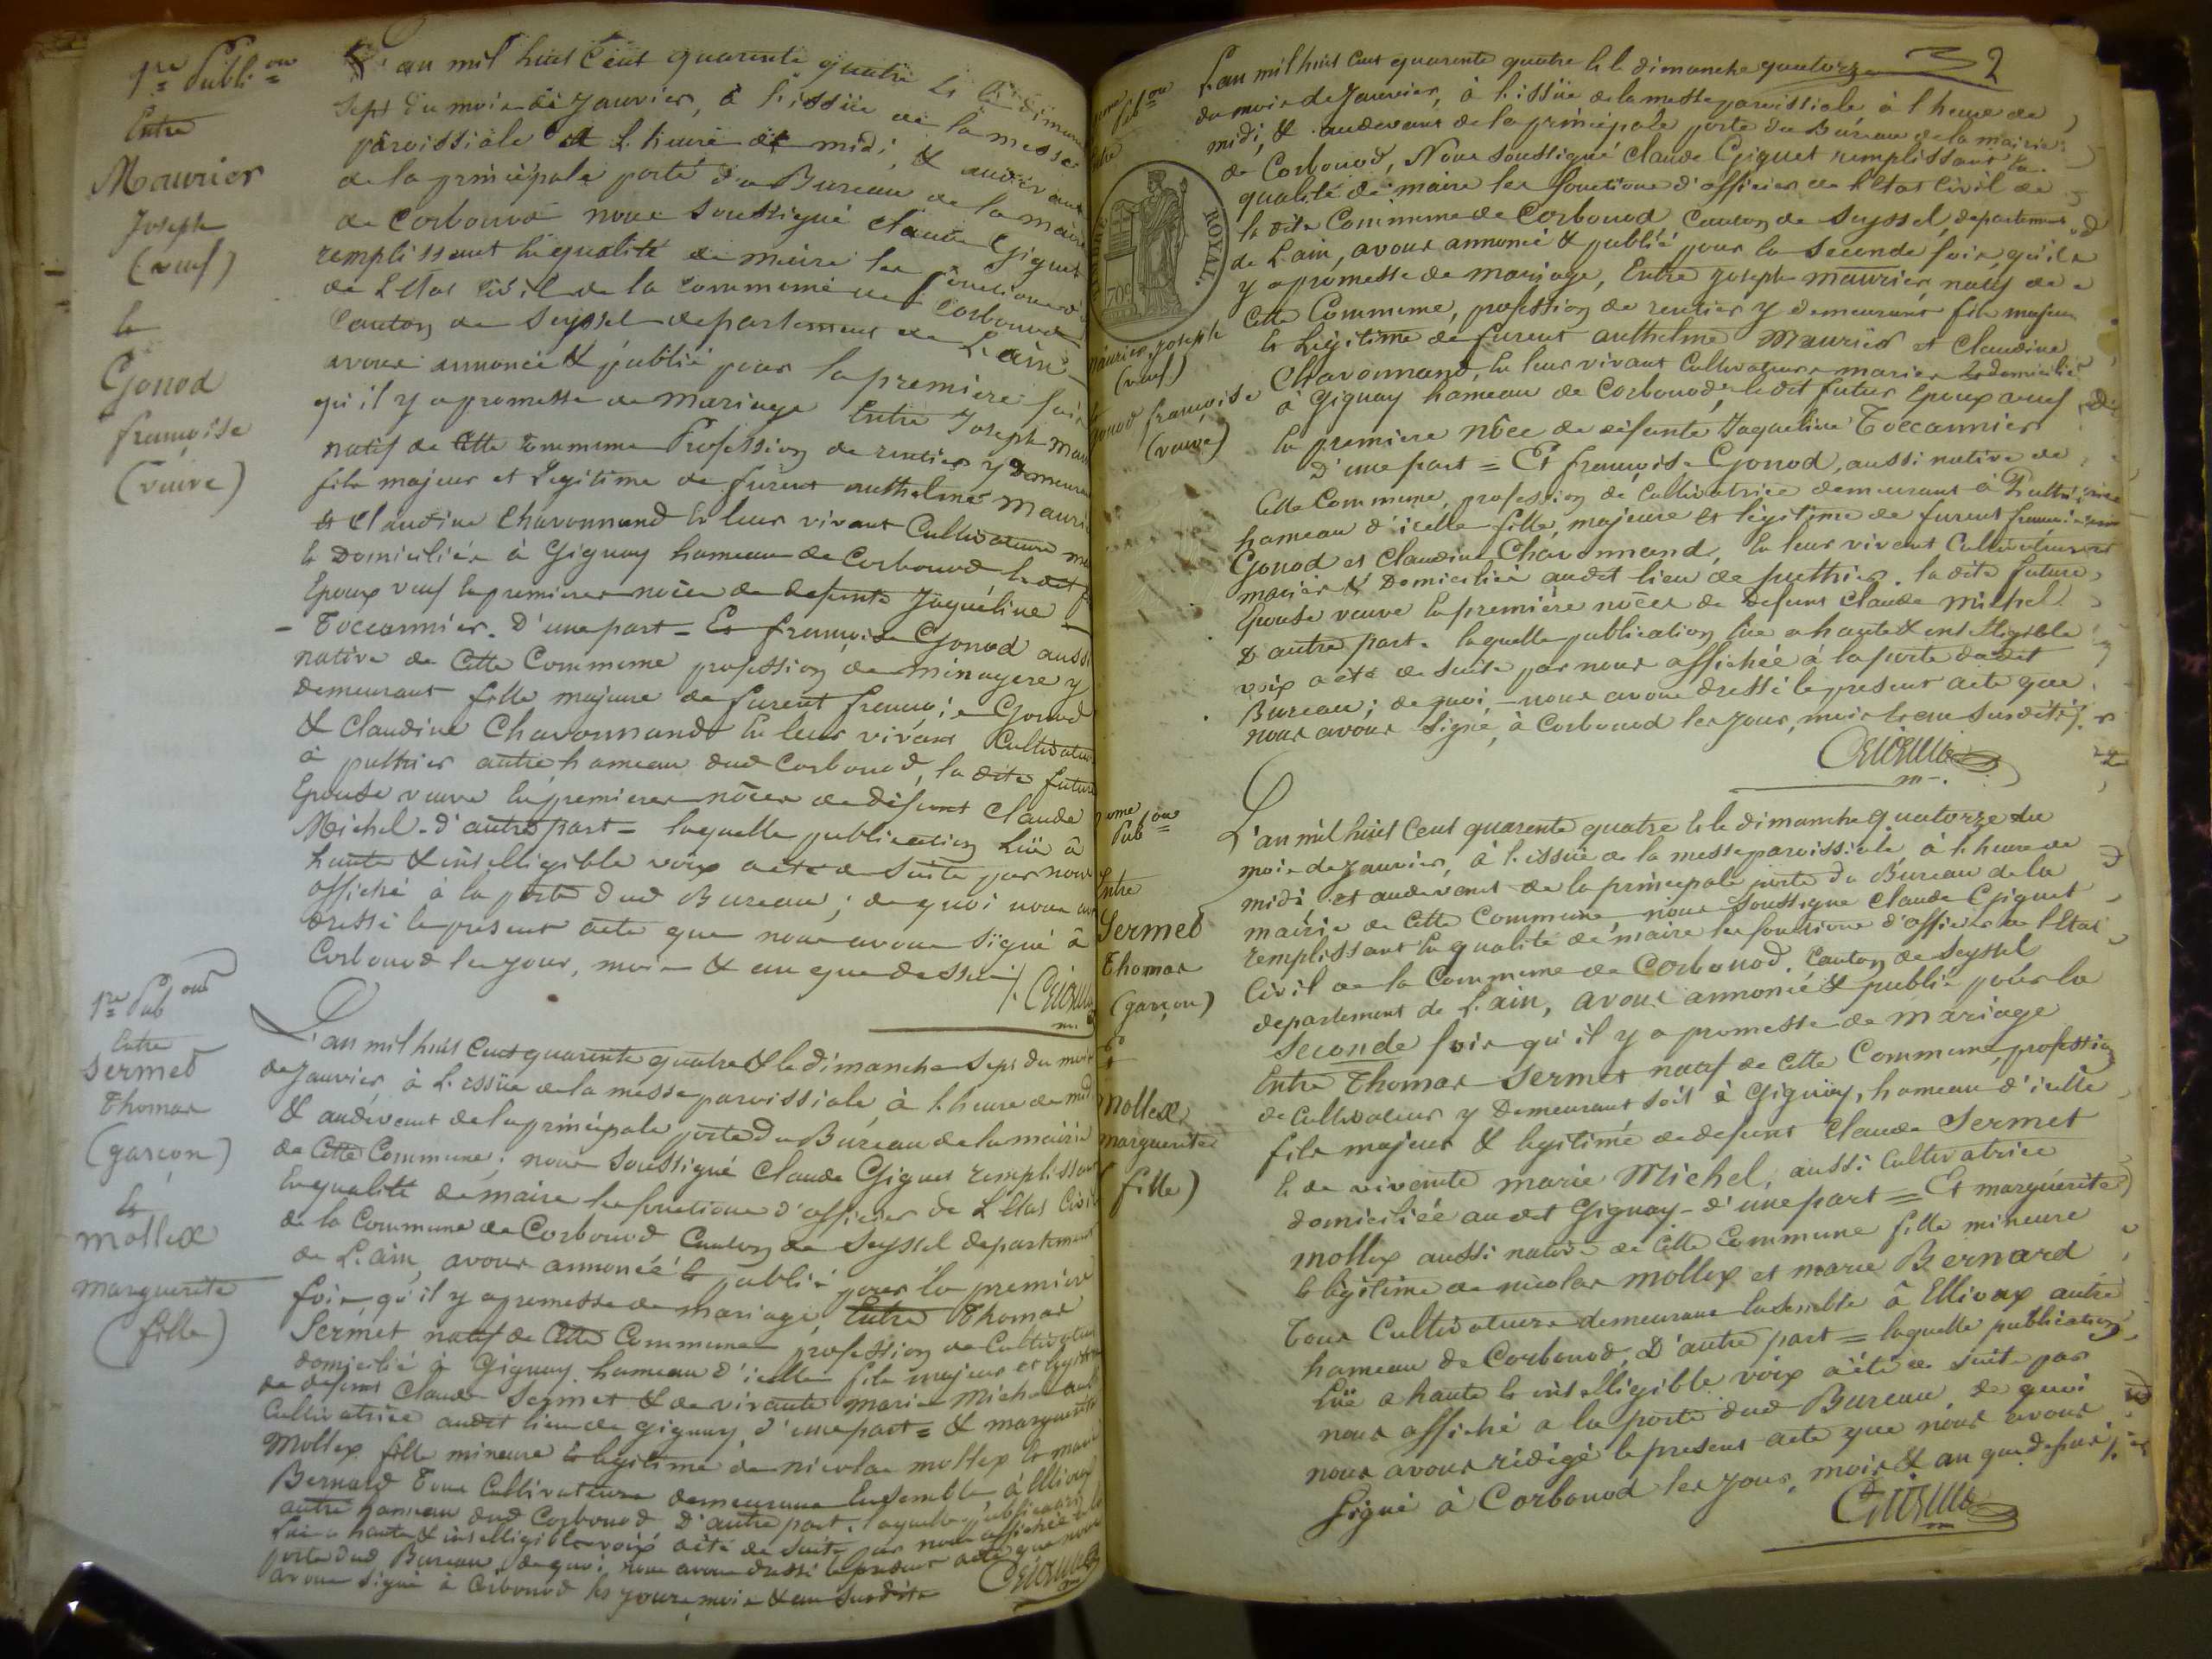 1re Publion
Entre
Maurier
Joseph
(veuf)
&
Gonod
françoise
(veuve)
L'an mil huit Cent quarante quatre & le dimanche
sept du mois de Janvier, à l'issüe de la messe
paroissiale à L'heure de midi, & audevant
de la principale porte du Bureau de la mairie
de Corbonod nous soussigné Claude Giguet
remplissant en qualité de maire les fonctions d'
de L'Etat Civil de la Commune de Corbonod
Canton de Seyssel departement de L'ain
avons annoncé & publié pour la premiere fois
qu'il y a promesse de mariage Entre Joseph Mau
natif de Cette Commune Profession de rentier y Demeurant
fils majeur et Legitime de furent anthelme Mauri
et Claudine Chavonnand En leur vivant Cultivateurs
& Domiciliés à Gignay hameau de Corbonod, le dit
Epoux veuf En premieres nôces de defunte Jaqueline
- Toccannier. D'une part - Et françoise Gonod aussi
native de Cette Commune profession de ménagere y
demeurant fille majeure de furent françois Gonod
& Claudine Chavonnand En leur vivant Cultivateurs
à puthier autre hameau dud Corbonod, la dite future
Epouse veuve En premieres nôces de défunt Claude
Michel - d'autre part - laquelle publication Lüe à
haute & intelligible voix a été de suite par nous
affiché à la porte dud Bureau ; de quoi nous
dressé le present acte que nous avons signé à
Corbonod les jour, mois & an que dessus
1re Pubon
Entre
Sermet
Thomas
(garçon)
&
Mollex
marguerite
(fille)
L'an mil huit Cent quarante quatre & le dimanche sept du mois
de Janvier à L'issüe de la messe paroissiale à l'heure de midi
& audevant de la principale porte du Bureau de la mairie
de Cette Commune, nous soussigné Claude Giguet remplissant
En qualité de maire les fonctions d'officier de L'Etat Civil
de la Commune de Corbonod Canton de Seyssel departement
de L'ain, avons annoncé & publié pour la premiere
fois qu'il y a promesse de mariage, Entre Thomas
Sermet natif de Cette Commune profession de Cultivateur
domicilié à Gignay hameau d'icelle fils majeur et legitime
de defunt Claude Sermet & de vivante marie Michel
Cultivatrice audit lieu de gignay d'une part = & marguerite
Mollex fille mineure & legitime de nicolas mollex & marie
Bernard Tous Cultivateurs demeurans Ensemble à Ellivax
autre hameau dud Corbonod D'autre part, laquelle publication
Lüe a haute & intelligible voix a été de suite par nous affichée
porte dud Bureau, de quoi nous avons dressé le present acte que nous
avons signé à Corbonod les jour, mois & an susdits
2
Pubon
ROYAL.
70c
maurier, joseph
(veuf)
gonod françoise
(veuve)
L'an mil huit Cent quarante quatre & le dimanche quatorze
du mois de Janvier, à l'issüe de la messe paroissiale à l'heure de
midi, & audevant de la principale porte du Bureau de la mairie
de Corbonod, Nous soussigné Claude Giguet remplissant en
qualité de maire les fonctions d'officier de l'Etat Civil de
la dite Commune de Corbonod Canton de Seyssel, departement
de L'ain, avons annoncé & publié pour la seconde fois qu'il
y a promesse de mariage, Entre joseph maurier, natif de
Cette Commune, profession de rentier y demeurant fils majeur
& Légitime de furent anthelme Maurier et Claudine
Chavonnand, En leur vivant Cultivateurs mariés & domiciliés
à Gignay hameau de Corbonod, le dit futur Epoux veuf
En premiere nôce de défunte Jaqueline Toccannier
D'une part = Et françoise Gonod, aussi native de
Cette Commune, profession de Cultivatrice demeurant à Puthier
hameau d'icelle fille, majeure et légitime de furent françois
Gonod et Claudine Chavonnand, En leur vivant Cultivateurs
mariés & Domiciliés audit lieu de puthier. la dite future
Epouse veuve En première nôces de defunt Claude Michel
D'autre part. laquelle publication lüe a haute & intelligible
voix a été de suite par nous affichée à la porte dudit
Bureau ; de quoi, nous avons dressé le present acte que
nous avons signé, à Corbonod les jour, mois & an susdits
Pubon
Entre
Sermet
Thomas
(garçon)
et
Mollex
marguerite
fille)
L'an mil huit Cent quarante quatre & le dimanche quatorze du
mois de Janvier, à l'issüe de la messe paroissiale à l'heure de
midi et audevant de la principale porte du Bureau de la
mairie de Cette Commune nous soussigné Claude Giguet
remplissant En qualité de maire les fonctions d'officier de l'Etat
Civil de la Commune de Corbonod. Canton de Seyssel
departement de L'ain, avons annoncé & publié pour la
seconde fois qu'il y a promesse de mariage
Entre Thomas Sermet natif de Cette Commune, profession
de Cultivateur y Demeurant soit à Gignay, hameau d'icelle
fils majeur & legitime de defunt Claude Sermet
& de vivante marie Michel, aussi Cultivatrice
domiciliée audit Gignay - d'une part = Et marguerite
mollex aussi native de Cette Commune fille mineure
& légitime de nicolas Mollex et marie Bernard
Tous Cultivateurs demeurans Ensemble à Ellivax autre
hameau de Corbonod, D'autre part = laquelle publication
Lüe a haute & intelligible voix a été de suite par
nous affiché a la porte dud Bureau, de quoi
nous avons rédigé le present acte que nous avons
Signé à Corbonod les jour, mois & an que dessus